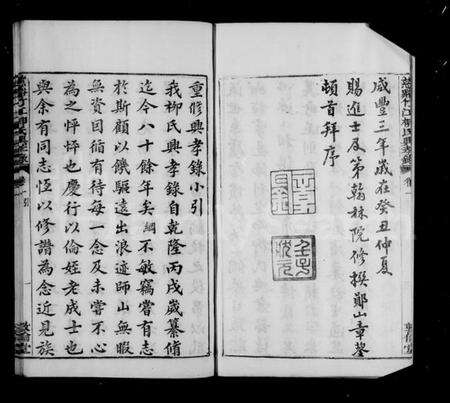 咸豐三年歲在癸丑仲夏
賜進士及第翰林院修撰鄞山章鋆
頓首拜序
重修興孝錄小引
我柳氏興孝錄自乾隆丙戌歲纂脩
迄今八十餘年矣綱不敏竊嘗有志
於斯顧以饑驅遠出浪迹師山無暇
無資因循有待每一念及未嘗不心
為之怦怦也慶行以倫姪老成士也
與余有同志恆以修譜為念近見族